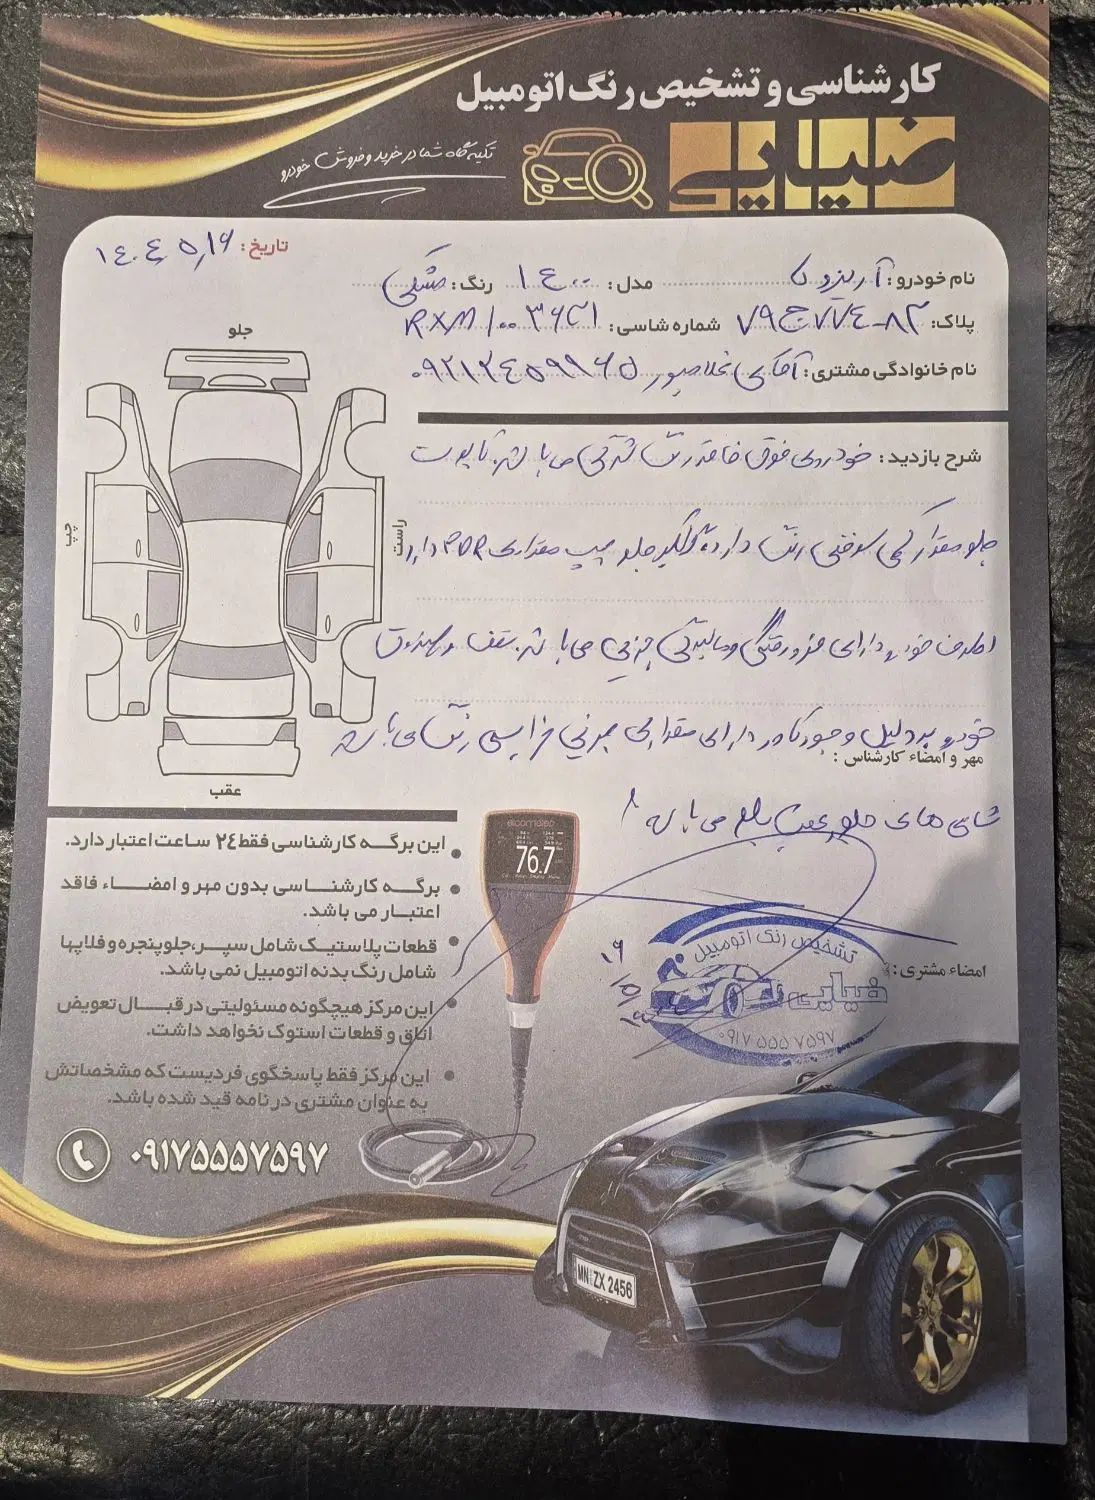 کارشناسی و تشخیص رنگ اتومبیل
ضیایی
تکیه گاه شما در خرید و فروش خودرو
تاریخ: ۱۴۰۴٫۵٫۱۶
نام خودرو: آریزو ۵ مدل: ۱۴۰۰ رنگ: مشکی
پلاک: شماره شاسی:
نام خانوادگی مشتری: آقای غلامپور
شرح بازدید: خودروی فوق فاقد رنگ شدگی می باشد.
جلو مقداری سوختگی رنگ دارد، گلگیر جلو چپ مقداری PDR دارد
اطراف خودرو دارای فرورفتگی و مالیدگی جزئی می باشد. سقف و صندوق
خودرو به دلیل وجود کاور دارای مقداری رنگ می باشد
مهر و امضاء کارشناس:
شاسی های جلو عقب سالم می باشد
جلو
چپ
راست
عقب
این برگه کارشناسی فقط ۲۴ ساعت اعتبار دارد.
برگه کارشناسی بدون مهر و امضاء فاقد
اعتبار می باشد.
قطعات پلاستیک شامل سپر،جلوپنجره و فلاپها
شامل رنگ بدنه اتومبیل نمی باشد.
این مرکز هیچگونه مسئولیتی در قبال تعویض
اتاق و قطعات استوک نخواهد داشت.
این مرکز فقط پاسخگوی فردیست که مشخصاتش
به عنوان مشتری در نامه قید شده باشد.
elcometer
76.7
امضاء مشتری:
تشخیص رنگ اتومبیل
ضیایی
۰۹۱۷ ۵۵۵ ۷۵۹۷
۰۹۱۷۵۵۵۷۵۹۷
MN ZX 2456